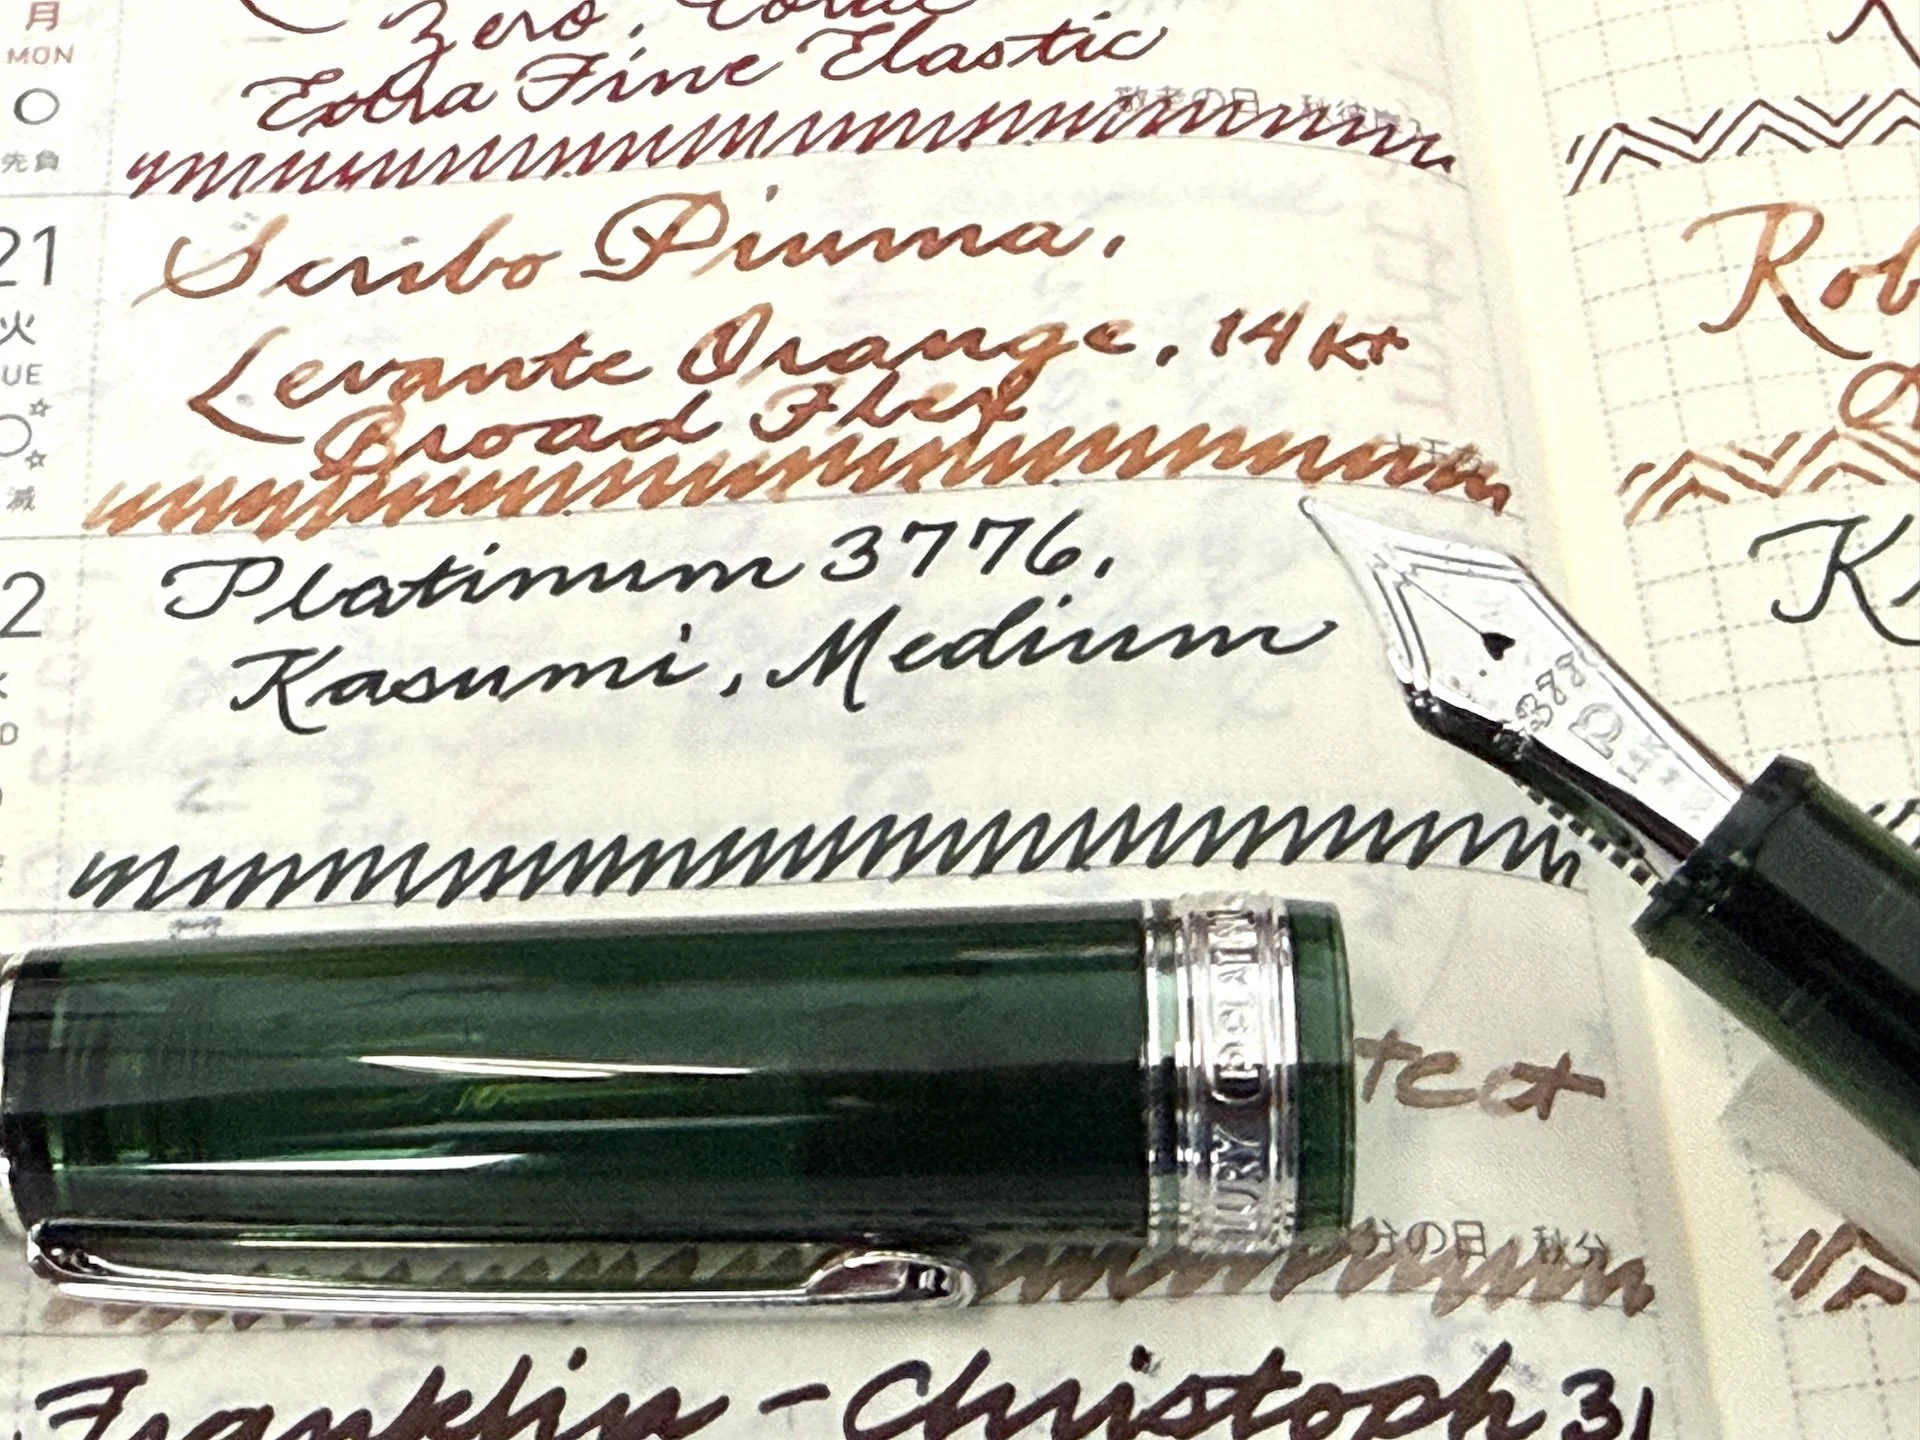 月
MON
先負
Zero,
Extra Fine Elastic
敬老の日
21
火
UE
滅
Scribo Piuma,
Levante Orange, 14kt
Broad Flex
Rob
2
D
Platinum 3776,
Kasumi, Medium
K
3776
P
14K
URY PLATIN
tect
分の日 秋分
Franklin - Christoph 31